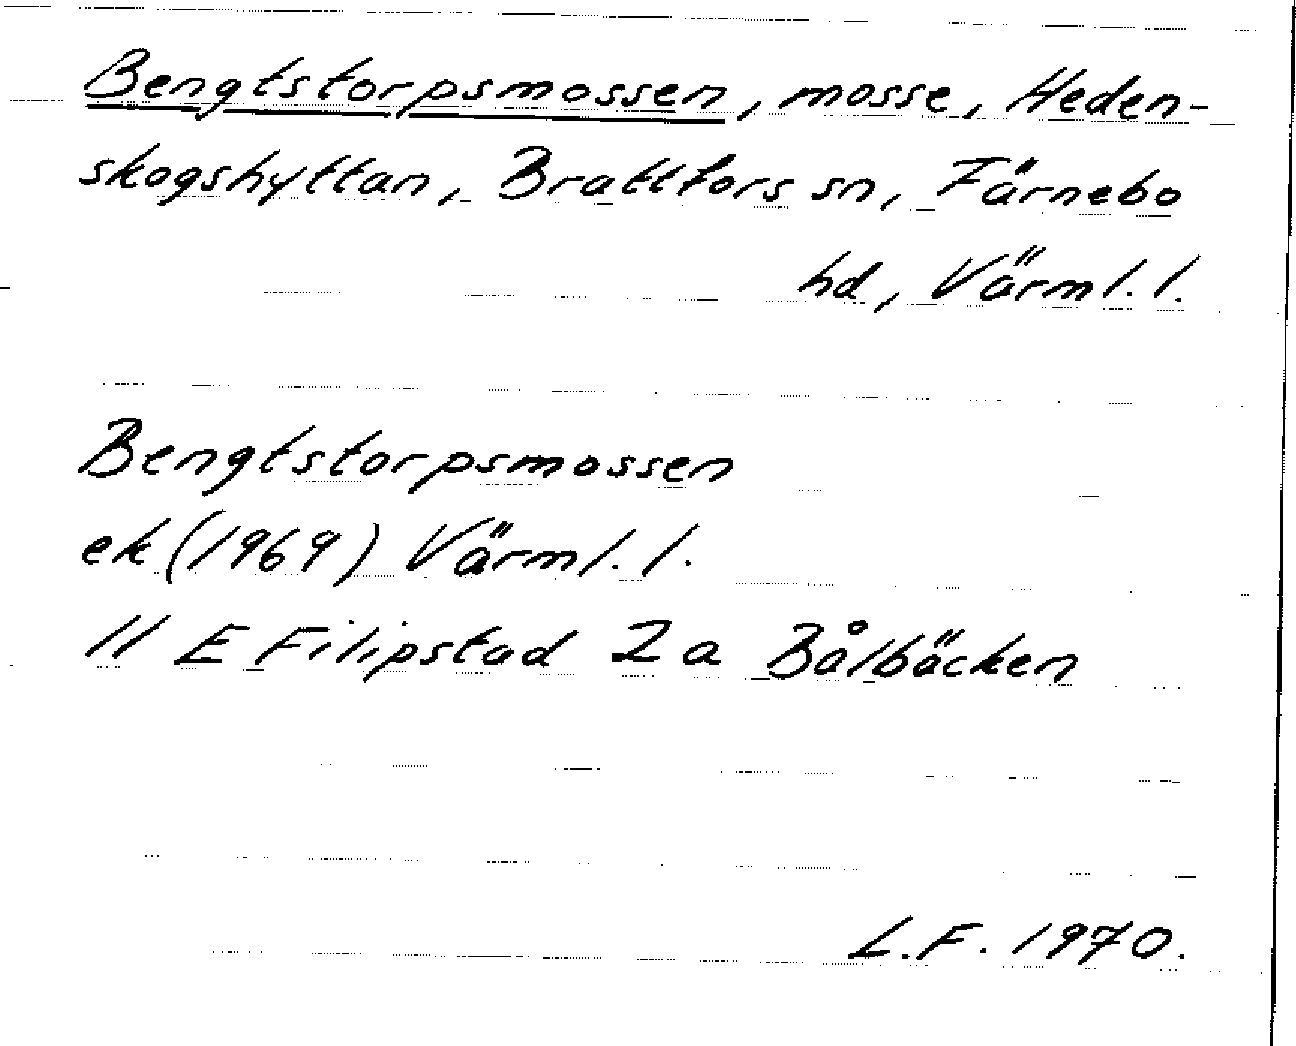 Bengtstorpsmossen, mosse, Heden-
skogshyttan, Brattfors sn, Färnebo
hd, Värml. l.
Bengtstorpsmossen
ek (1969) Värml. l.
11 E Filipstad 2a Bålbäcken
L.F. 1970.